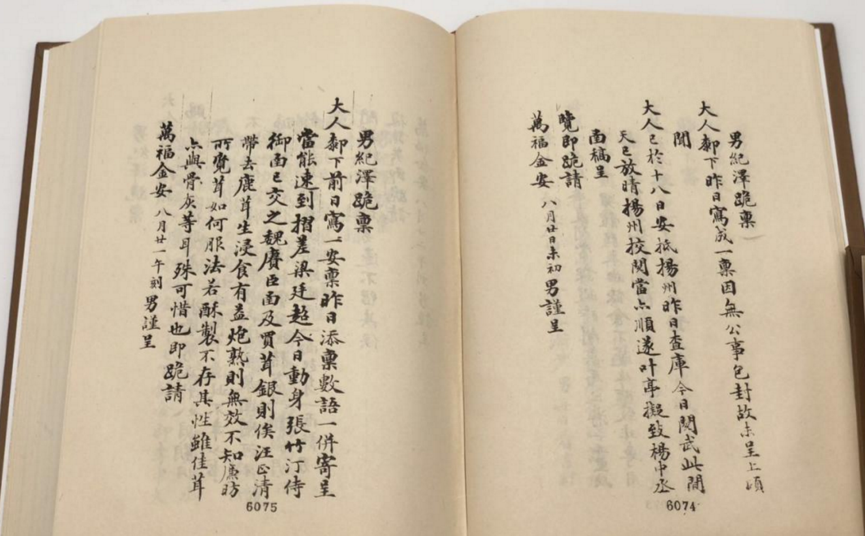 男紀澤跪稟
大人鄰下昨日寫成一稟因無公事包封故未呈上頃
聞
大人已於十八日安抵揚州昨日查庫今日閱武此間
天已放晴揚州校閱當亦順遂叶亭擬致楊中丞
函稿呈
覽即跪請
萬福金安 八月廿日未初 男謹呈
6074
男紀澤跪稟
大人鄰下前日寫一安稟昨日添稟數語一併寄呈
當能速到摺差梁廷超今日動身張竹汀侍
御函已交之魏賡臣函及買茸銀則俟汪正清
帶去鹿茸生浸食有益炮熟則無效不知廉昉
所寬茸如何服法若酥製不存其性雖佳茸
亦與骨灰等耳殊可惜也即跪請
萬福金安 八月廿一午刻 男謹呈
6075